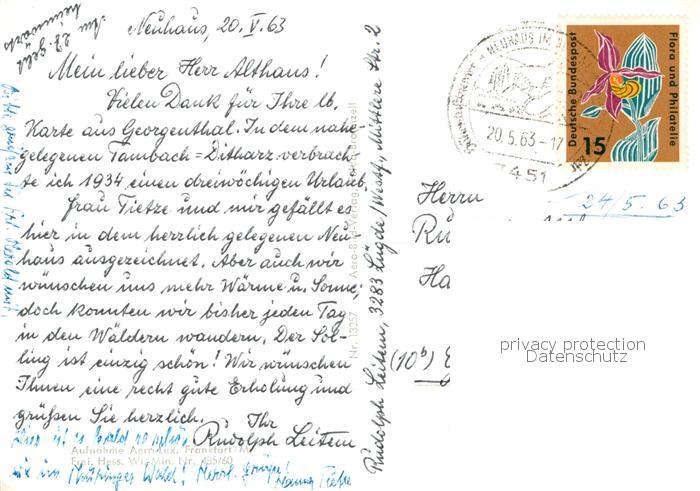 Am 23. geht
heimwärts
Neuhaus, 20. V. 63
Mein lieber Herr Althaus!
Vielen Dank für Ihre lb.
Karte aus Georgenthal. In dem nahe
gelegenen Tambach=Ditharz verbrach=
te ich 1934 einen dreiwöchigen Urlaub
Frau Tietze und mir gefällt es
hier in dem herrlich gelegenen Neu
haus ausgezeichnet. Aber auch wir
wünschen uns mehr Wärme u. Sonne,
doch konnten wir bisher jeden Tag
in den Wäldern wandern. Der Sol-
ling ist einzig schön! Wir wünschen
Ihnen eine recht gute Erholung und
grüßen Sie herzlich.
Ihr
Rudolph Leitem
Hier ist der Wald so schön
wie im Thüringer Wald! Herzl. Grüße!
Tietze
Aufnahme Aero-Lux, Frankfurt/M.
Frei. Hess. Wi. Min. Nr. 485/60
Nr. 13257 Aero-Bild-Verlag
Rudolph Leitem, 3283 Lügde/Westf., Mittlere Str. 2
NEUHAUS IM
20.5.63-17
3451
Deutsche Bundespost
Flora und Philatelie
15
24/5. 63
Herrn
Ru
Ha
(10b)
privacy protection
Datenschutz